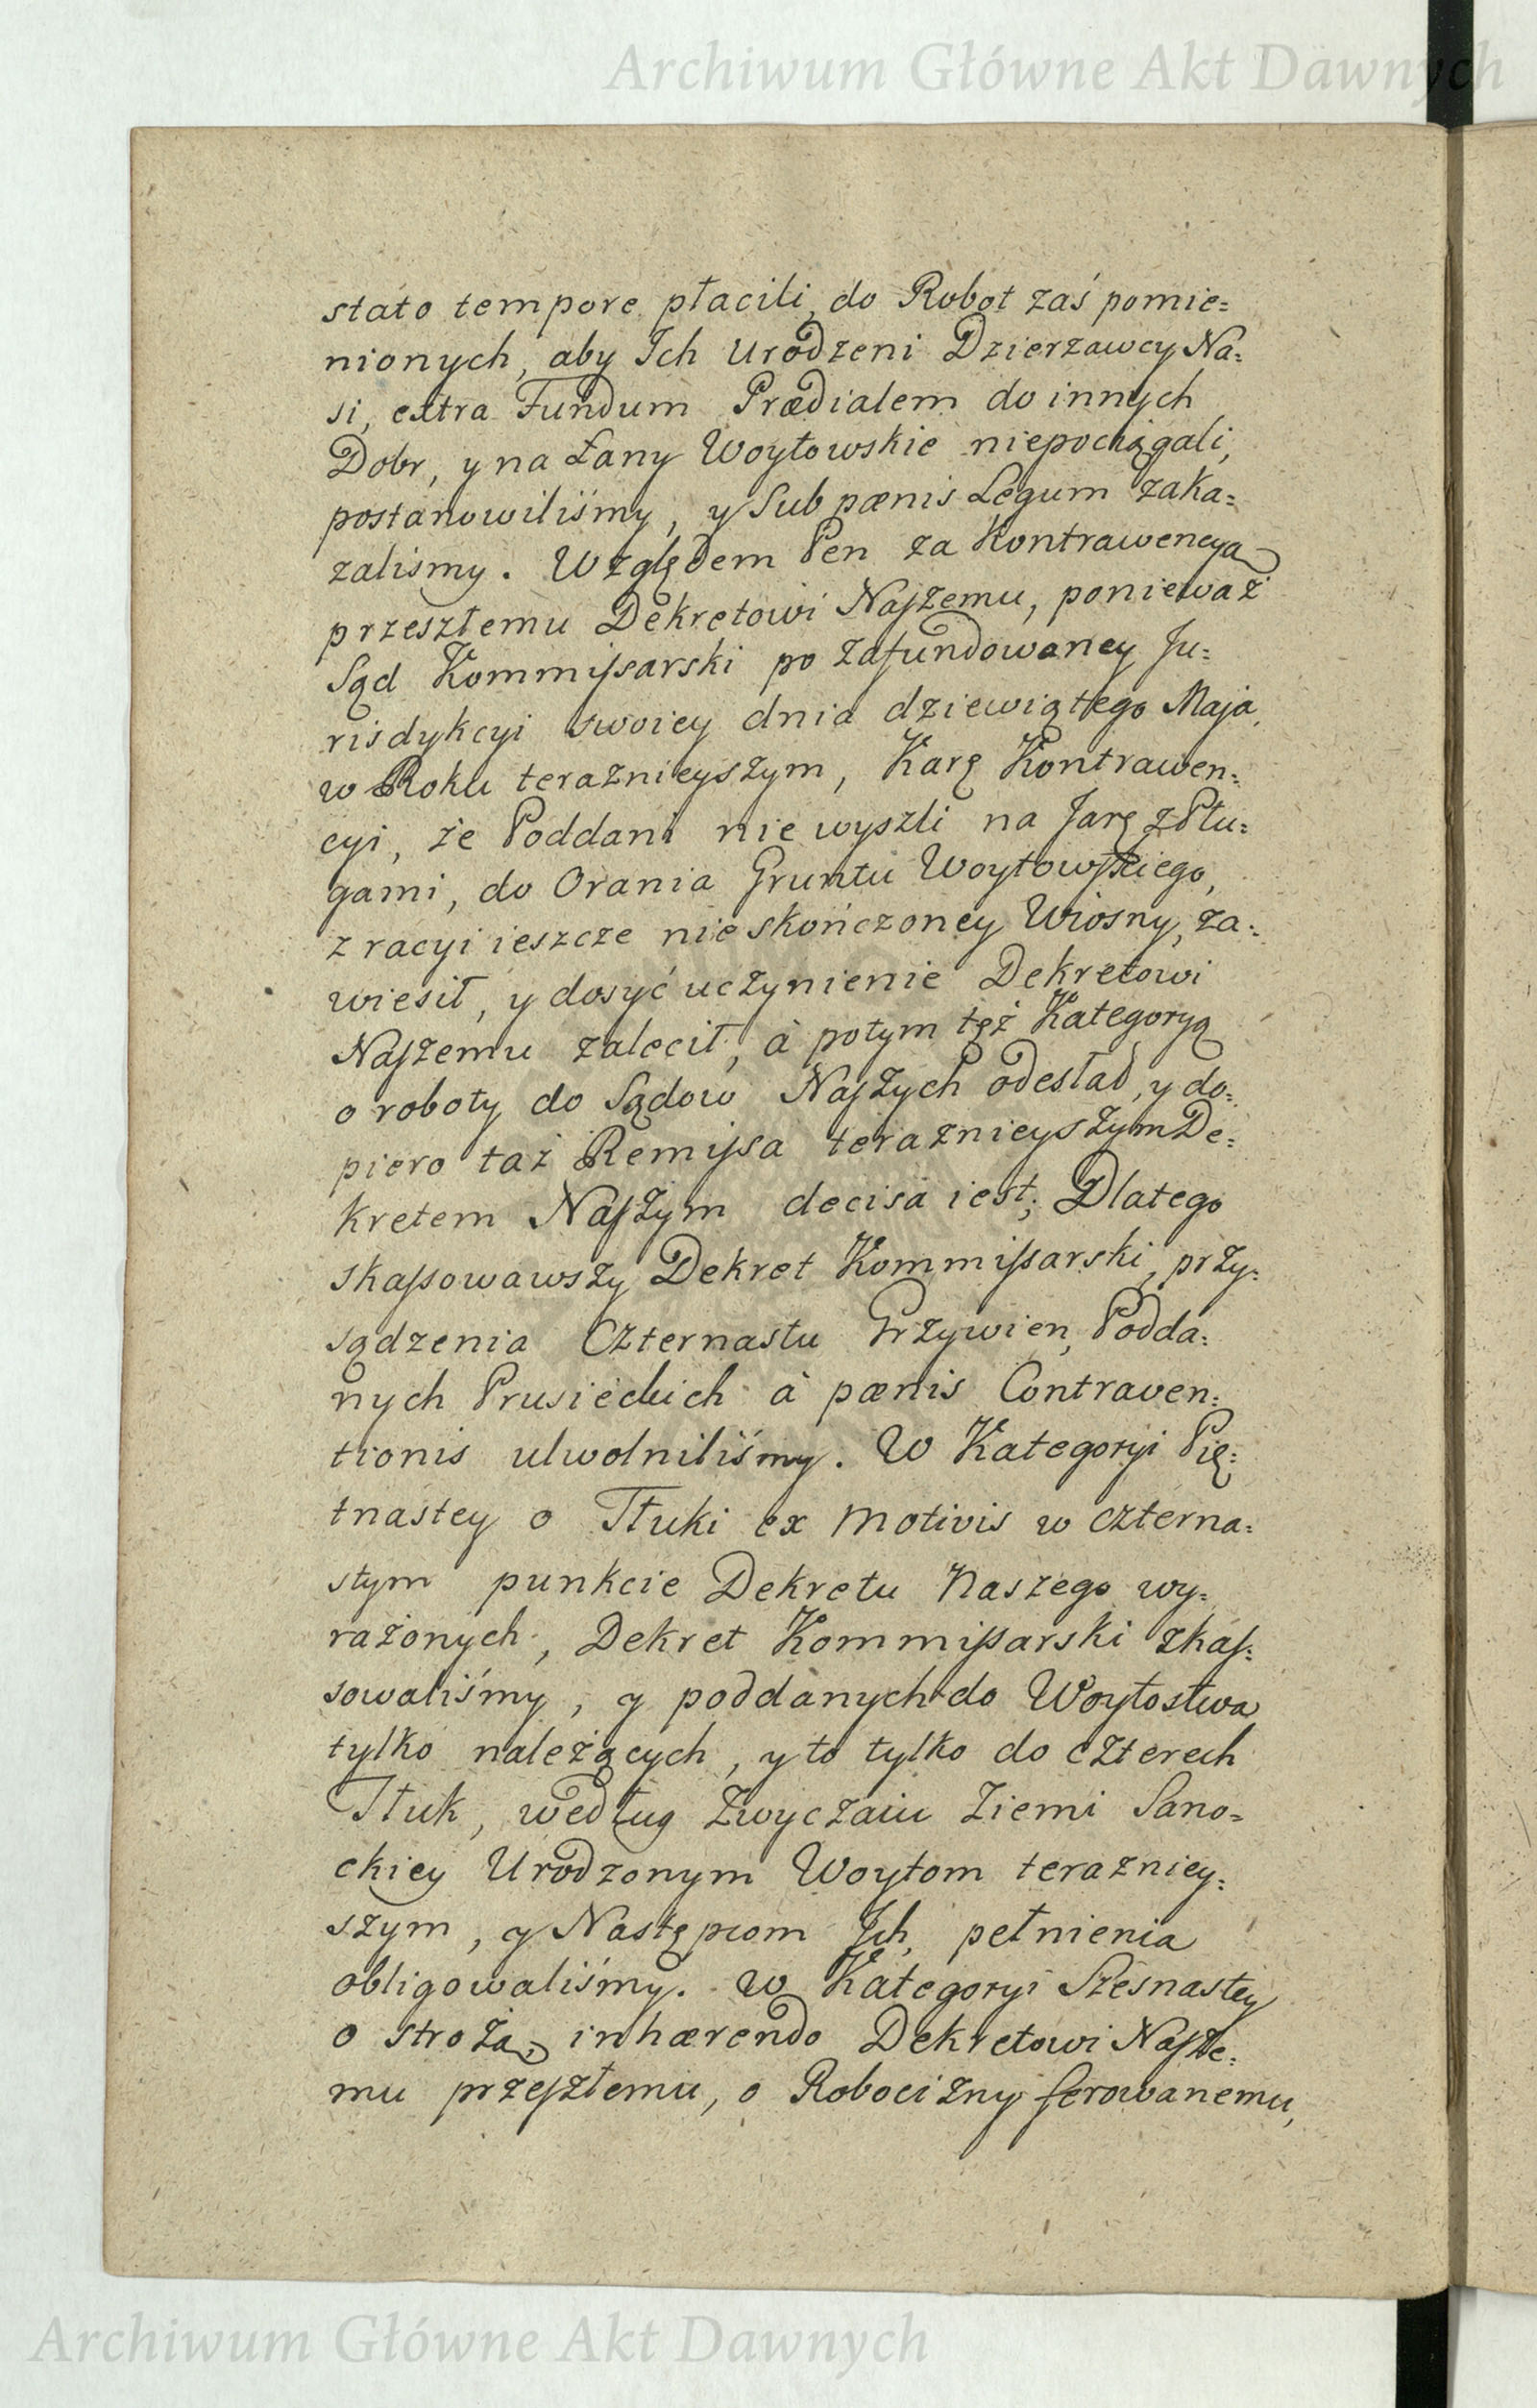 Archiwum Główne Akt Dawnych
stato tempore płacili, do Robot zaś pomie=
nionych, aby Ich Urodzeni Dzierzawcy Na=
si, extra Fundum Prædialem do innych
Dobr, y na Łany Woytowskie niepociągali,
postanowiliśmy, y Sub pænis Legum zaka=
zalismy. Względem Pen za Kontrawencyą
przeszłemu Dekretowi Naszemu, ponieważ
Sąd Kommissarski po zafundowaney Ju=
risdykcyi swoiey dnia dziewiątego Maja,
w Roku teraznieyszym, Karę Kontrawen=
cyi, że Poddani nie wyszli na Jarę z Płu=
gami, do Orania Gruntu Woytowskiego,
z racyi ieszcze nie skończoney Wiosny, za=
wiesił, y dosyć uczynienie Dekretowi
Naszemu zalecił, à potym tęż Kategoryą
o roboty do Sądow Naszych odesłał, y do=
piero taż Remissa teraznieyszym De=
kretem Naszym decisa iest; Dlatego
skassowawszy Dekret Kommissarski, przy=
sądzenia Czternastu Grzywien, Podda=
nych Prusieckich à pænis Contraven=
tionis uwolniliśmy. W Kategoryi Pię=
tnastey o Tłuki ex Motivis w czterna=
stym punkcie Dekretu Naszego wy=
rażonych, Dekret Kommissarski zkas=
sowaliśmy, y poddanych do Woytostwa
tylko należących, y to tylko do czterech
Tłuk, według Zwyczaiu Ziemi Sano=
ckiey Urodzonym Woytom terazniey=
szym, y Następcom Ich, pełnienia
obligowaliśmy. W Kategoryi Szesnastey
o stroża, inhærendo Dekretowi Nasze=
mu przeszłemu, o Robocizny ferowanemu,
Archiwum Główne Akt Dawnych